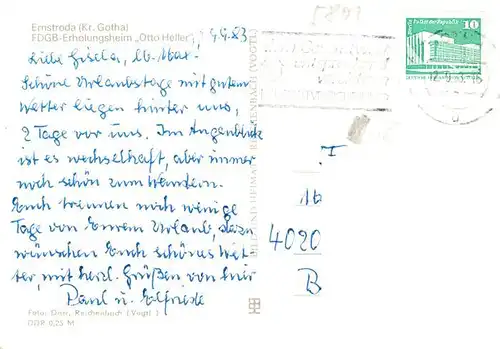 Ernstroda (Kr. Gotha)
FDGB-Erholungsheim „Otto Heller"
4.9.83
Liebe Gisela, lb. Max.
Schöne Urlaubstage mit gutem
Wetter liegen hinter uns,
2 Tage vor uns. Im Augenblick
ist es wechselhaft, aber immer
noch schön zum Wandern.
Euch trennen noch wenige
Tage von Eurem Urlaub, dazu
wünschen Euch schönes Wet-
ter, mit herzl. Grüßen von hier
Paul u. Elfriede
Foto: Darr, Reichenbach (Vogtl.)
DDR 0,25 M
BILD UND HEIMAT REICHENBACH (VOGTL)
10
16
4020
B